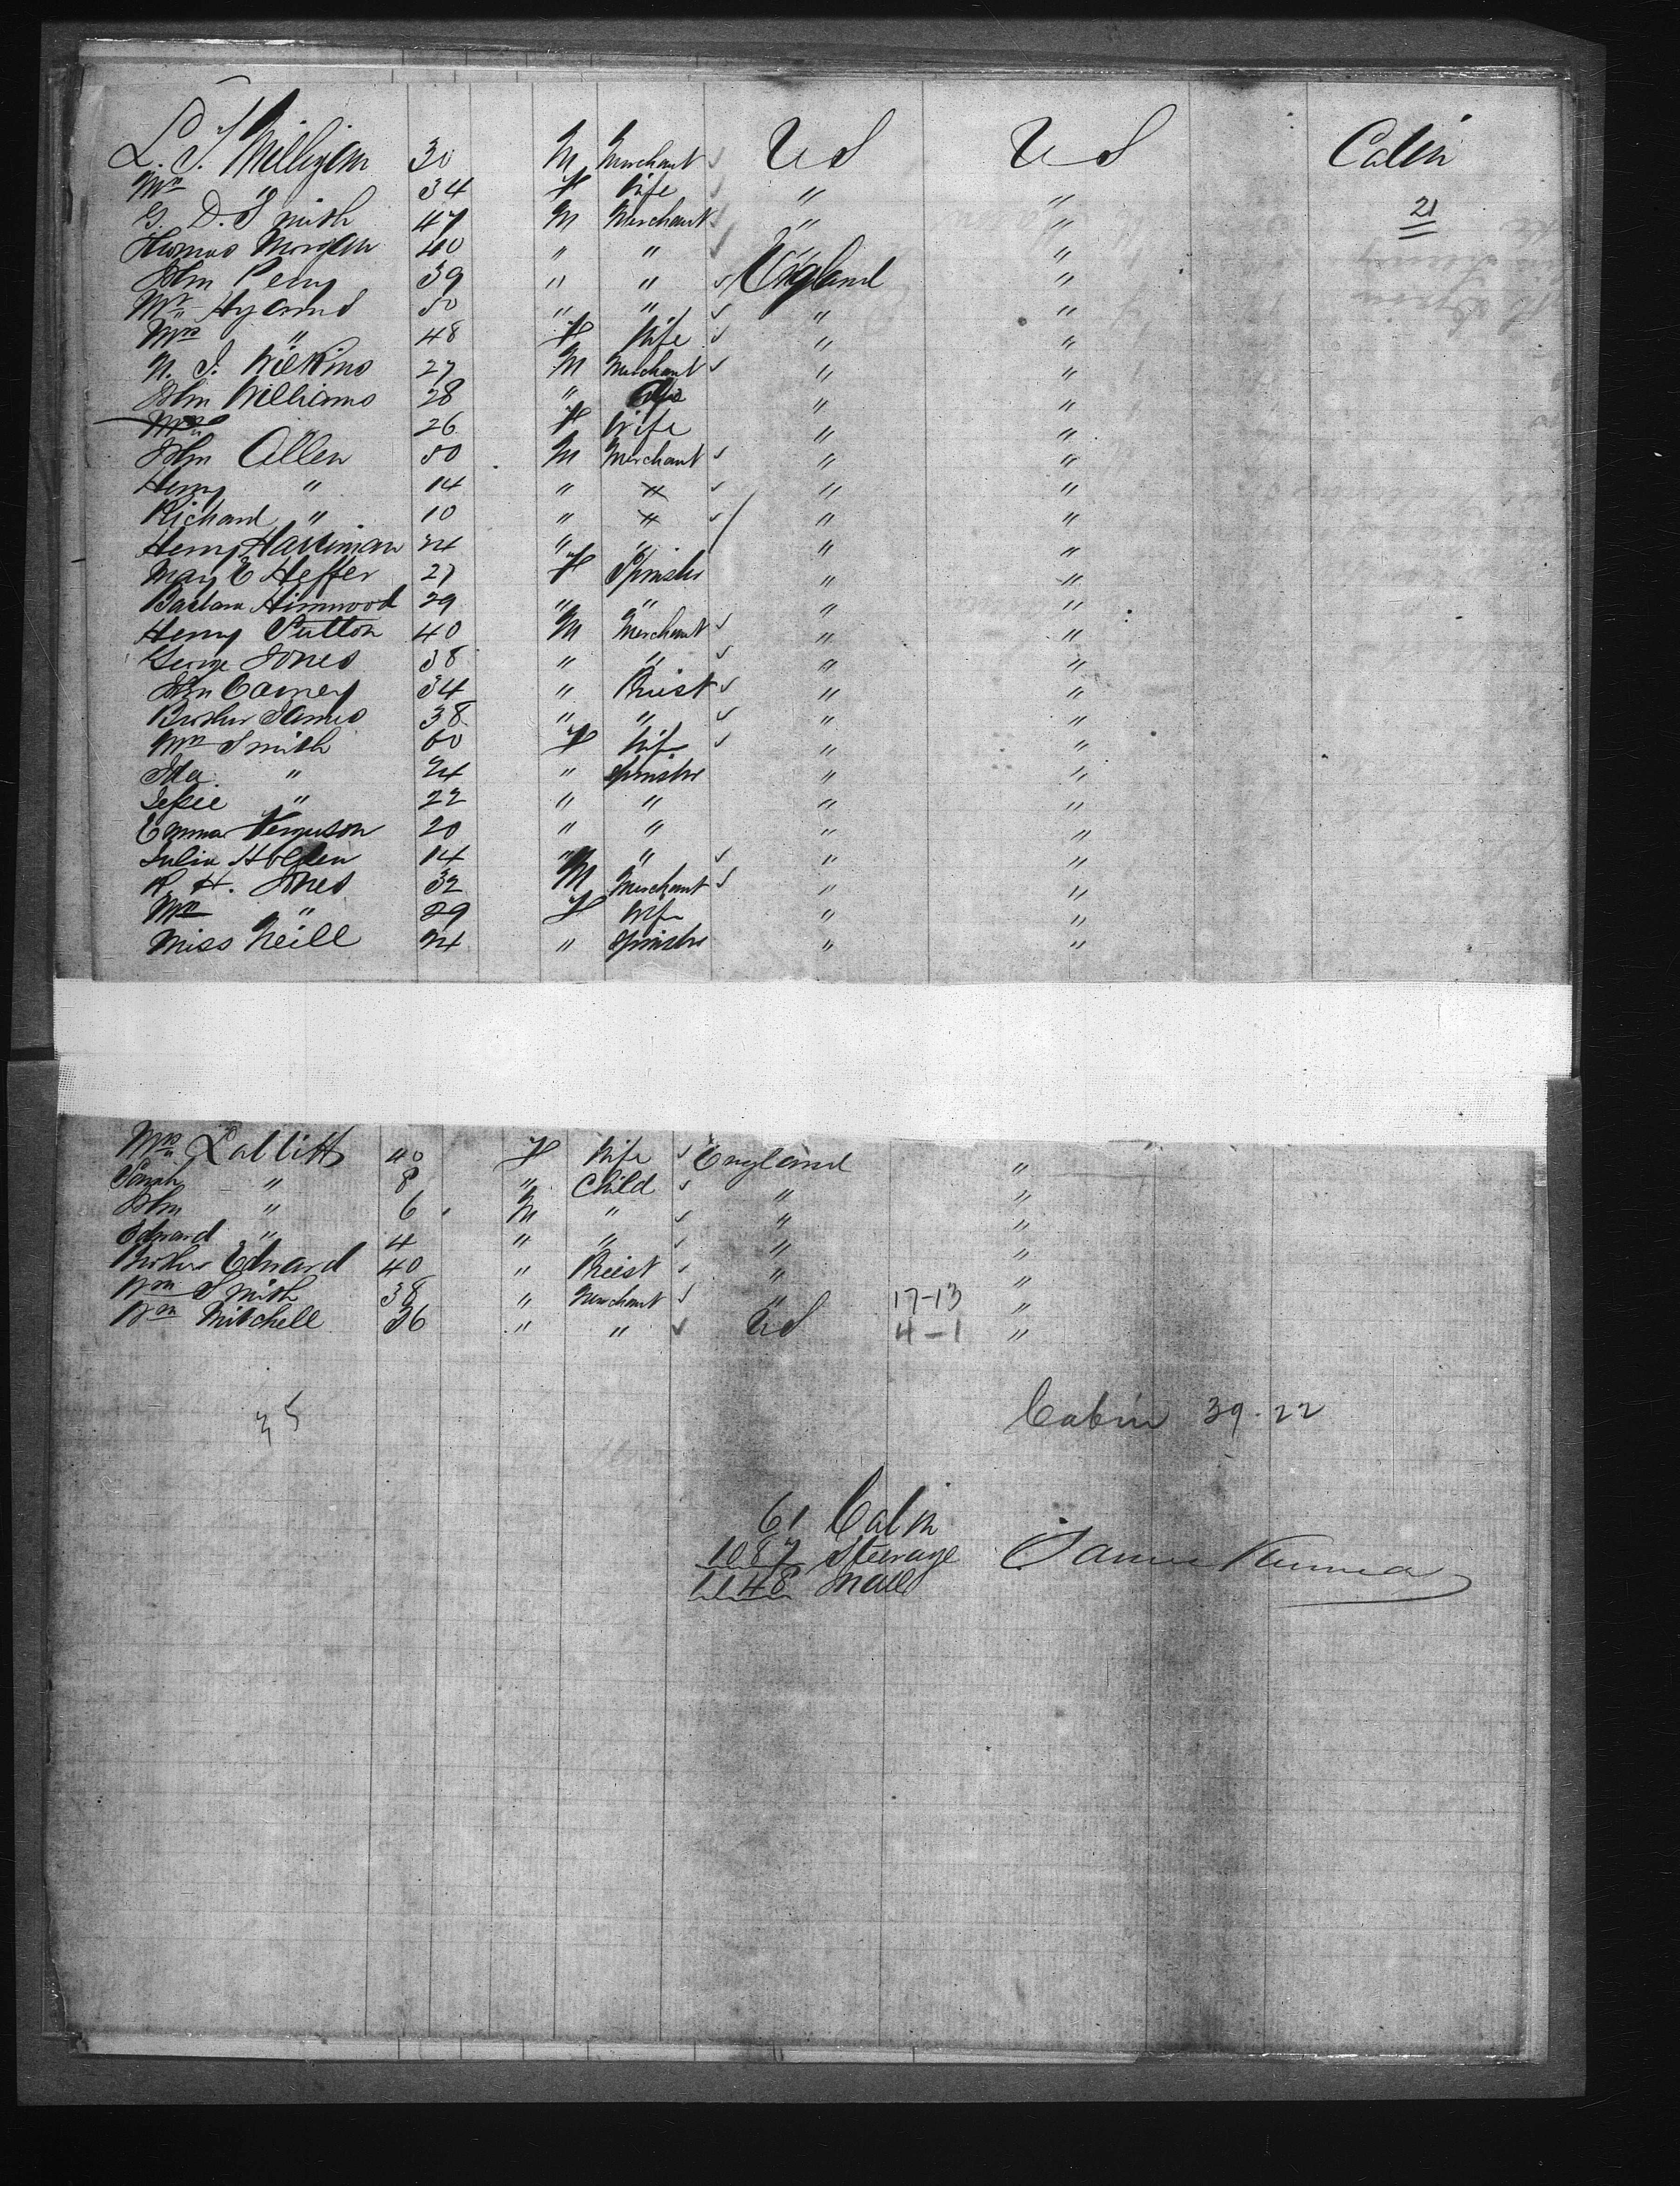 L. T. Milligan 30 M Merchant ✓ U S U S Cabin
Mrs " 34 F Wife ✓ " "
G. D. Smith 47 M Merchant ✓ " " 21
Thomas Morgan 40 " " ✓ " "
John Perry 39 " " ✓ England "
Mr Hyams 50 " " ✓ " "
Mrs " 48 F Wife ✓ " "
N. J. Wilkins 27 M Merchant ✓ " "
John Williams 28 " " "
Mrs " 26 F Wife " "
John Allen 50 M Merchant ✓ " "
Henry " 14 " " ✓ " "
Richard " 10 " " ✓ " "
Henry Harriman 24 " " " "
Mary E Heffer 27 F Spinster " "
Barbara Himwood 29 " " " "
Henry Sutton 40 M Merchant ✓ " "
George Jones 38 " " ✓ " "
John Carney 34 " Priest ✓ " "
Brother James 38 " " ✓ " "
Mrs Smith 60 F Wife ✓ " "
Ida " 24 " Spinster " "
Jessie " 22 " " " "
Emma Ferguson 20 " " " "
Julia Holden 14 " " ✓ " "
R. H. Jones 32 M Merchant ✓ " "
Mrs " 29 F Wife " "
Miss Neill 24 " Spinster " "
Mrs Labbitt 40 F Wife ✓ England "
Sarah " 8 " Child ✓ " "
John " 6 M " ✓ " "
Edward " 4 " " ✓ " "
Brother Edward 40 " Priest ✓ " "
Wm Smith 38 " Merchant ✓ " 17-13 "
Wm Mitchell 36 " " ✓ U S 4-1 "
35
Cabin 39-22
61 Cabin
1087 Steerage James
1148